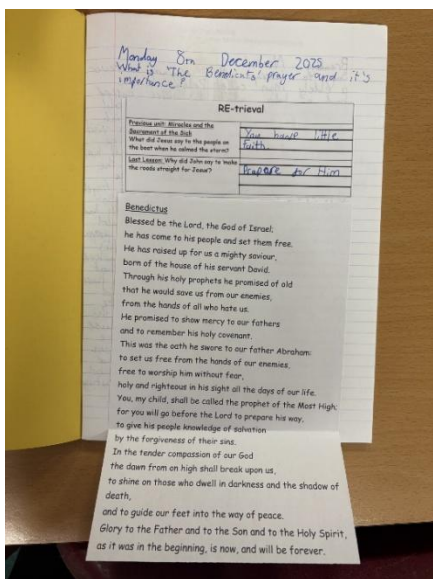 Monday 8th December 2025
What is The Benedicats' prayer and it's
importance?
RE-trieval
Previous unit: Miracles and the
Sacrament of the Sick
What did Jesus say to the people on
the boat when he calmed the storm?
You have little
faith.
Last Lesson: Why did John say to 'make
the roads straight for Jesus'?
Prepare for Him
Benedictus
Blessed be the Lord, the God of Israel;
he has come to his people and set them free.
He has raised up for us a mighty saviour,
born of the house of his servant David.
Through his holy prophets he promised of old
that he would save us from our enemies,
from the hands of all who hate us.
He promised to show mercy to our fathers
and to remember his holy covenant.
This was the oath he swore to our father Abraham:
to set us free from the hands of our enemies,
free to worship him without fear,
holy and righteous in his sight all the days of our life.
You, my child, shall be called the prophet of the Most High;
for you will go before the Lord to prepare his way,
to give his people knowledge of salvation
by the forgiveness of their sins.
In the tender compassion of our God
the dawn from on high shall break upon us,
to shine on those who dwell in darkness and the shadow of
death,
and to guide our feet into the way of peace.
Glory to the Father and to the Son and to the Holy Spirit,
as it was in the beginning, is now, and will be forever.